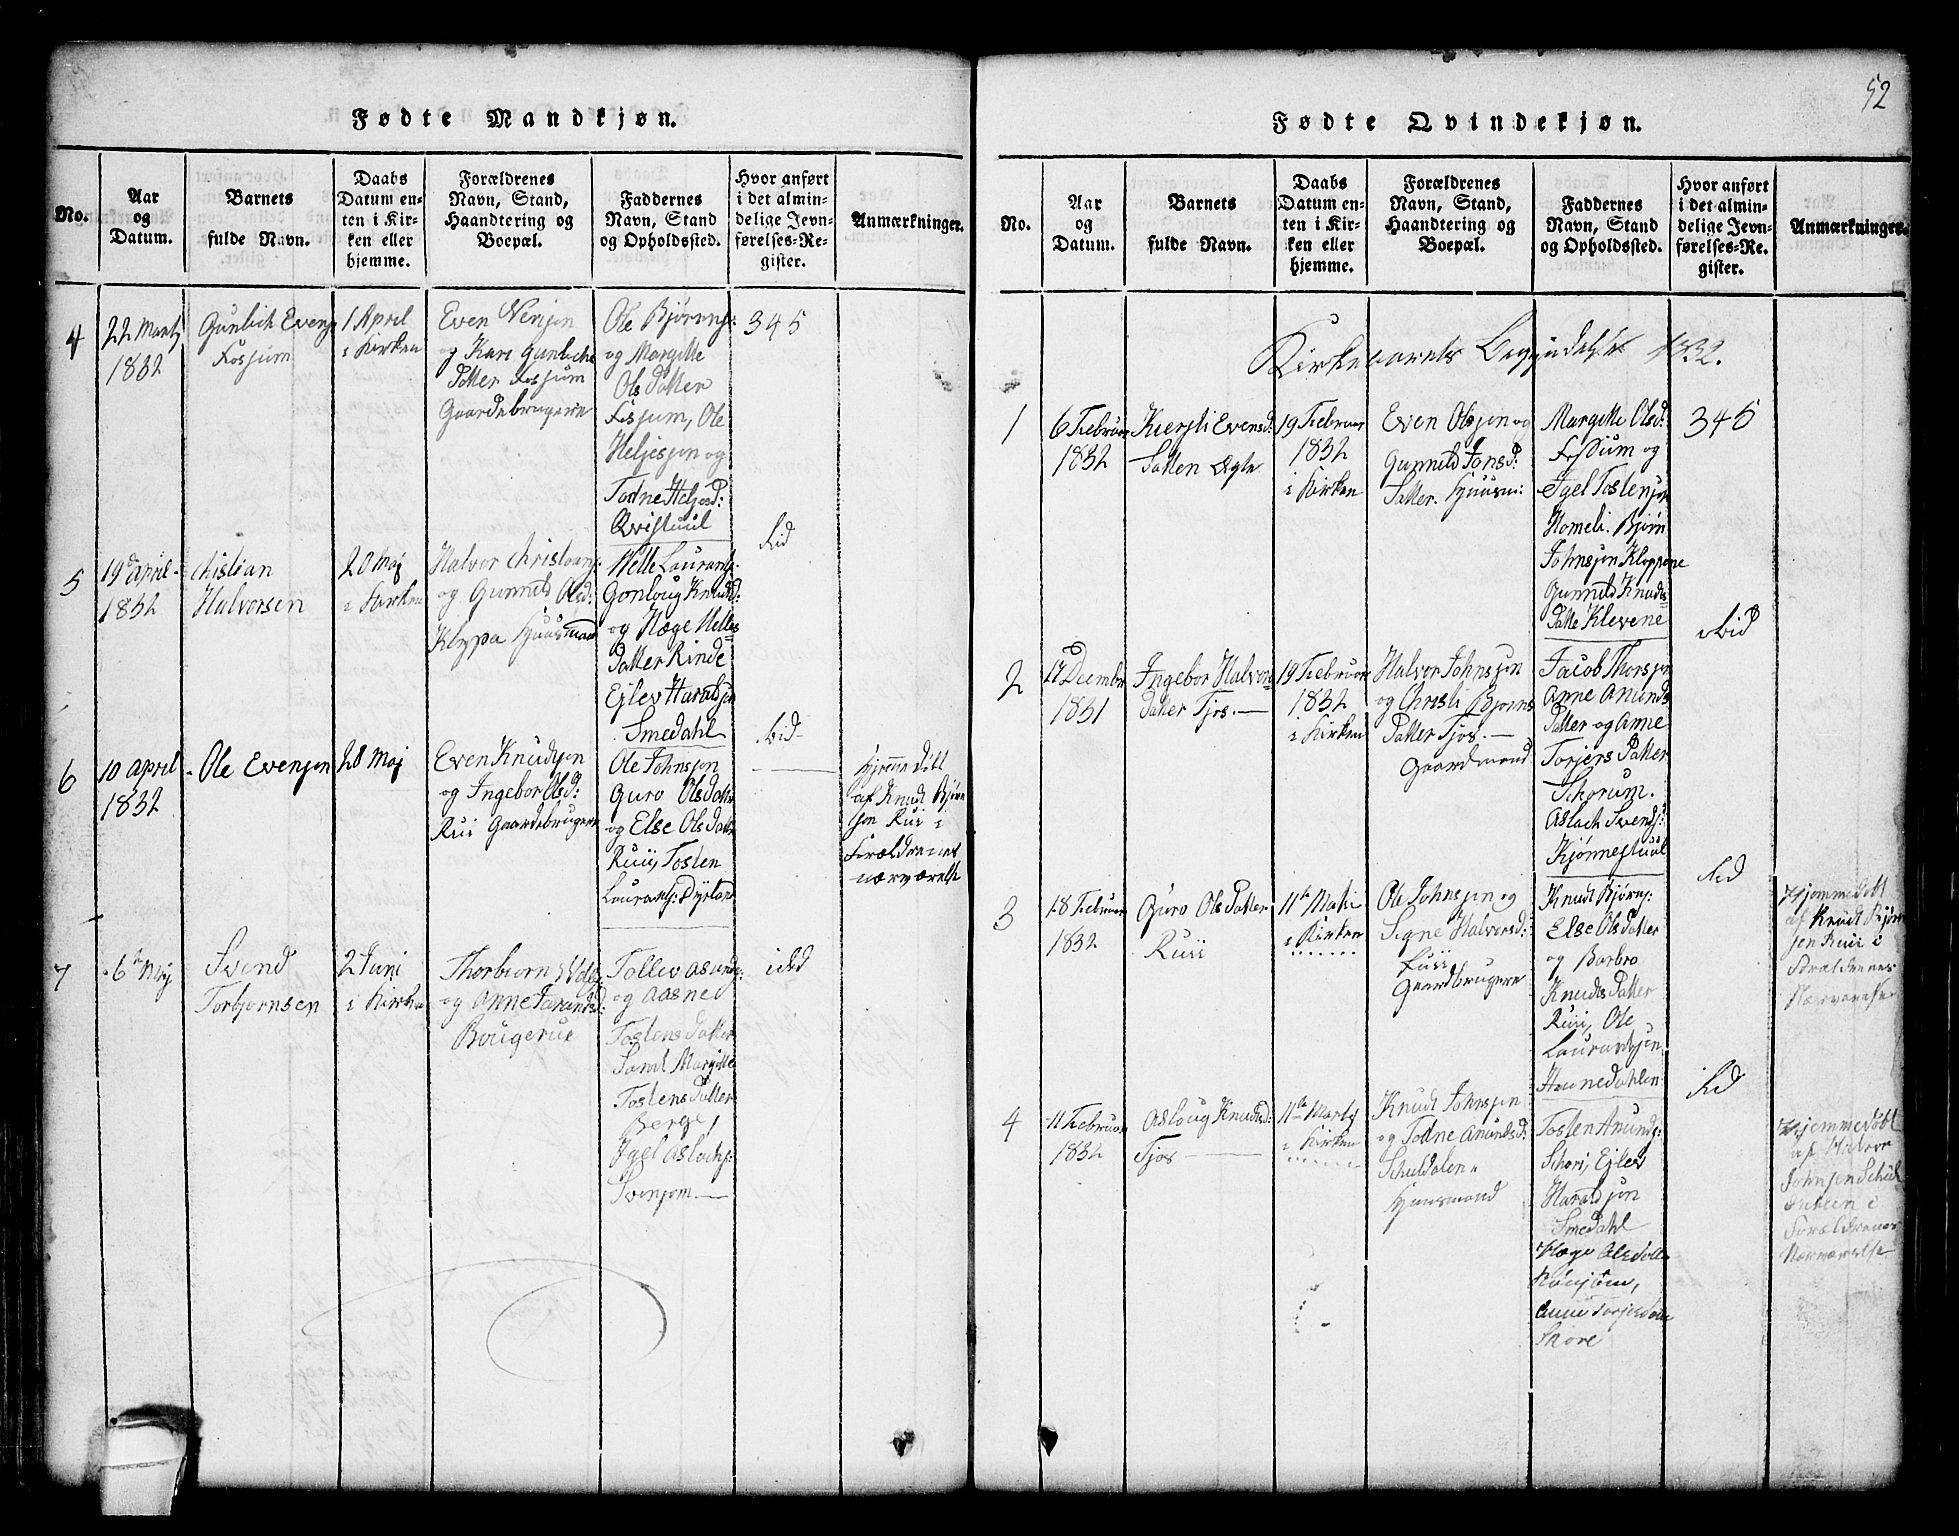 52
Fødte Mandkjøn.
No.
Aar
og
Datum.
Barnets
fulde Navn.
Daabs
Datum en-
ten i Kir-
ken eller
hjemme.
Forældrenes
Navn, Stand,
Haandtering og
Boepæl.
Faddernes
Navn, Stand
og Opholdssted.
Hvor anført
i det almin-
delige Jevn-
førelses-Re-
gister.
Anmærkninger.
4
22 Martj
1832
Gunlech Evens
Fossum
1 April
i Kirken
Even
og Kari Gunlechs
Datter Fossum
Gaardebrugere
Ole Bjørns:
og Margitte
Ols Datter
Fossum, Ole
Heljesøn og
Todne Heljesd:
Qvistuul
345
5
19de April
1832
Christian
Halvorsen
20 Maj
i Kirken
Halvor Christians:
og Gunnild Olsd:
Kleppa Huusmand
Helle Laurants:
Gonloug Knudsd:
og Hæge Helles
Datter Rinde
Ejlev Haraldsøn
Smedahl
ibid
6
10 April
1832
Ole Evensøn
28 Maj
Even Knudsøn
og Ingebor Olsd:
Ruii Gaardebrugere
Ole Johnsøn
Guro Olsdatter
og Else Olsdatter
Ruii, Tosten
Laurants: Dyrland
ibid
Hjemmedøbt
af Knud Bjørn
søn Rui i
Forældrenes
nærværelse
7
6te Maj
Svend
Torbjornsen
2 Juni
i Kirken
Thorbiorn
og Anne
Bougerue
Tollev Asunds:
og Aasne
Tostens Datter
Samt Margitte
Tostens Datter
Berge,
Igel Aslachs:
Svenjom
ibid
Fødte Qvindekjøn.
No.
Aar
og
Datum.
Barnets
fulde Navn.
Daabs
Datum en-
ten i Kir-
ken eller
hjemme.
Forældrenes
Navn, Stand,
Haandtering og
Boepæl.
Faddernes
Navn, Stand
og Opholdssted.
Hvor anført
i det almin-
delige Jevn-
førelses-Re-
gister.
Anmærkninger.
Kirkeaarets Begyndelse 1832.
1
6 Februar
1832
Kiersti Evensd:
Ægte
19 Februar
1832
i Kirken
Even Olsøn og
Gunnild Jonsd:
Huusm:
Margitte Olsd:
Fossum og
Igel Tostensøn
Homeli. Bjørn
Johnsøn Kleppene
Gunnild Knuds
Datte Klevene
345
2
17 December
1831
Ingebor Halvors
Datter Tjos.
19 Februar
1832
i Kirken
Halvor Johnsøn
og Christi Bjorns
Datter Tjos.
Gaardmand
Jacob Thorsøn
Anne Anunds
Datter og Anne
Torjers Datter
Schorum.
Aslach Svends:
Kjønnestuul
ibid
3
18 Februar
1832
Guro Ols Datter
Ruii
11te Martj
i Kirken
Ole Johnsøn og
Signe Halvorsd:
Ruii
Gaardbrugere
Knud Bjørns:
Else Ols Datter
og Barbro
Knuds Datter
Ruii, Ole
Laurandsøn
Hannedahlen
ibid
Hjemmedøbt
af Knud Bjørn
sen Ruii i
Forældrenes
Nærværelse
4
11 Februar
1832
Asloug Knudsd:
Tjos
11te Martj
i Kirken
Knud Johnsøn
og Todne Anundsd:
Schuldalen
Huusmand
Tosten Anunds:
Schori, Ejlev
Haraldsøn
Smedahl
Hæge Olsdatter
Anne Torjesdatter
Skore
ibid
Hjemmedøbt
af Halvor
Johnsen Schul
dalen i
Forældrenes
Nærværelse